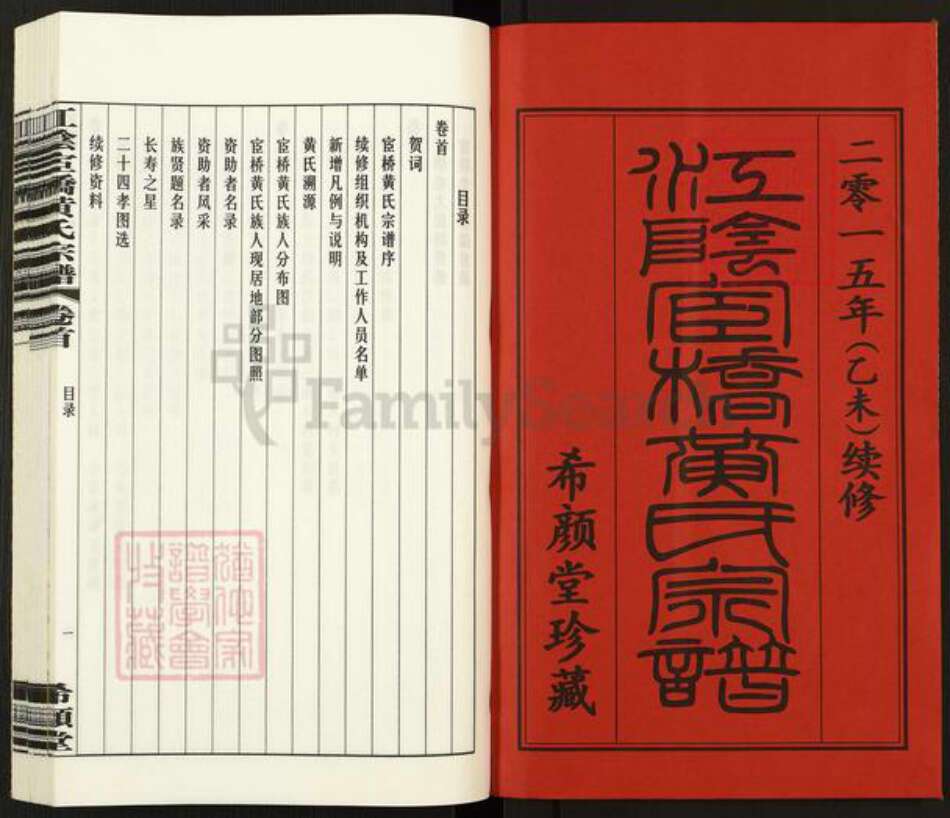 二零一五年（乙未）续修
江陰宦橋黄氏宗譜
希颜堂珍藏
目录
卷首
贺词
宦桥黄氏宗谱序
续修组织机构及工作人员名单
新增凡例与说明
黄氏溯源
宦桥黄氏族人分布图
宦桥黄氏族人现居地部分图照
资助者名录
资助者风采
族贤题名录
长寿之星
二十四孝图选
续修资料
江陰宦橋黄氏宗譜 卷首
目录
一
希顔堂
譜學會
收藏
FamilySearch